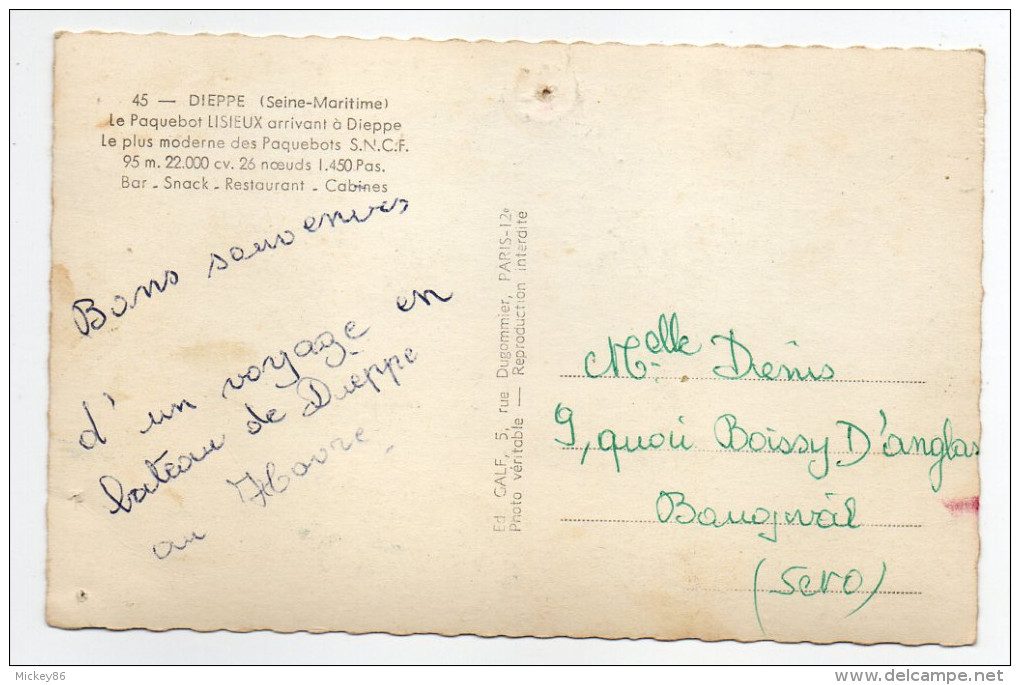 45 — DIEPPE (Seine-Maritime)
Le Paquebot LISIEUX arrivant à Dieppe
Le plus moderne des Paquebots S.N.C.F.
95 m. 22.000 cv. 26 nœuds 1.450 Pas.
Bar - Snack - Restaurant - Cabines
Bons souvenirs
d'un voyage en
bateau de Dieppe
au Havre.
Ed. GALF, 5, rue Dugommier, PARIS-12e
Photo véritable — Reproduction interdite
Melle Denis
9, quai Boissy D'anglas
Bougival
(S et O)
Mickey86
delcampe.net